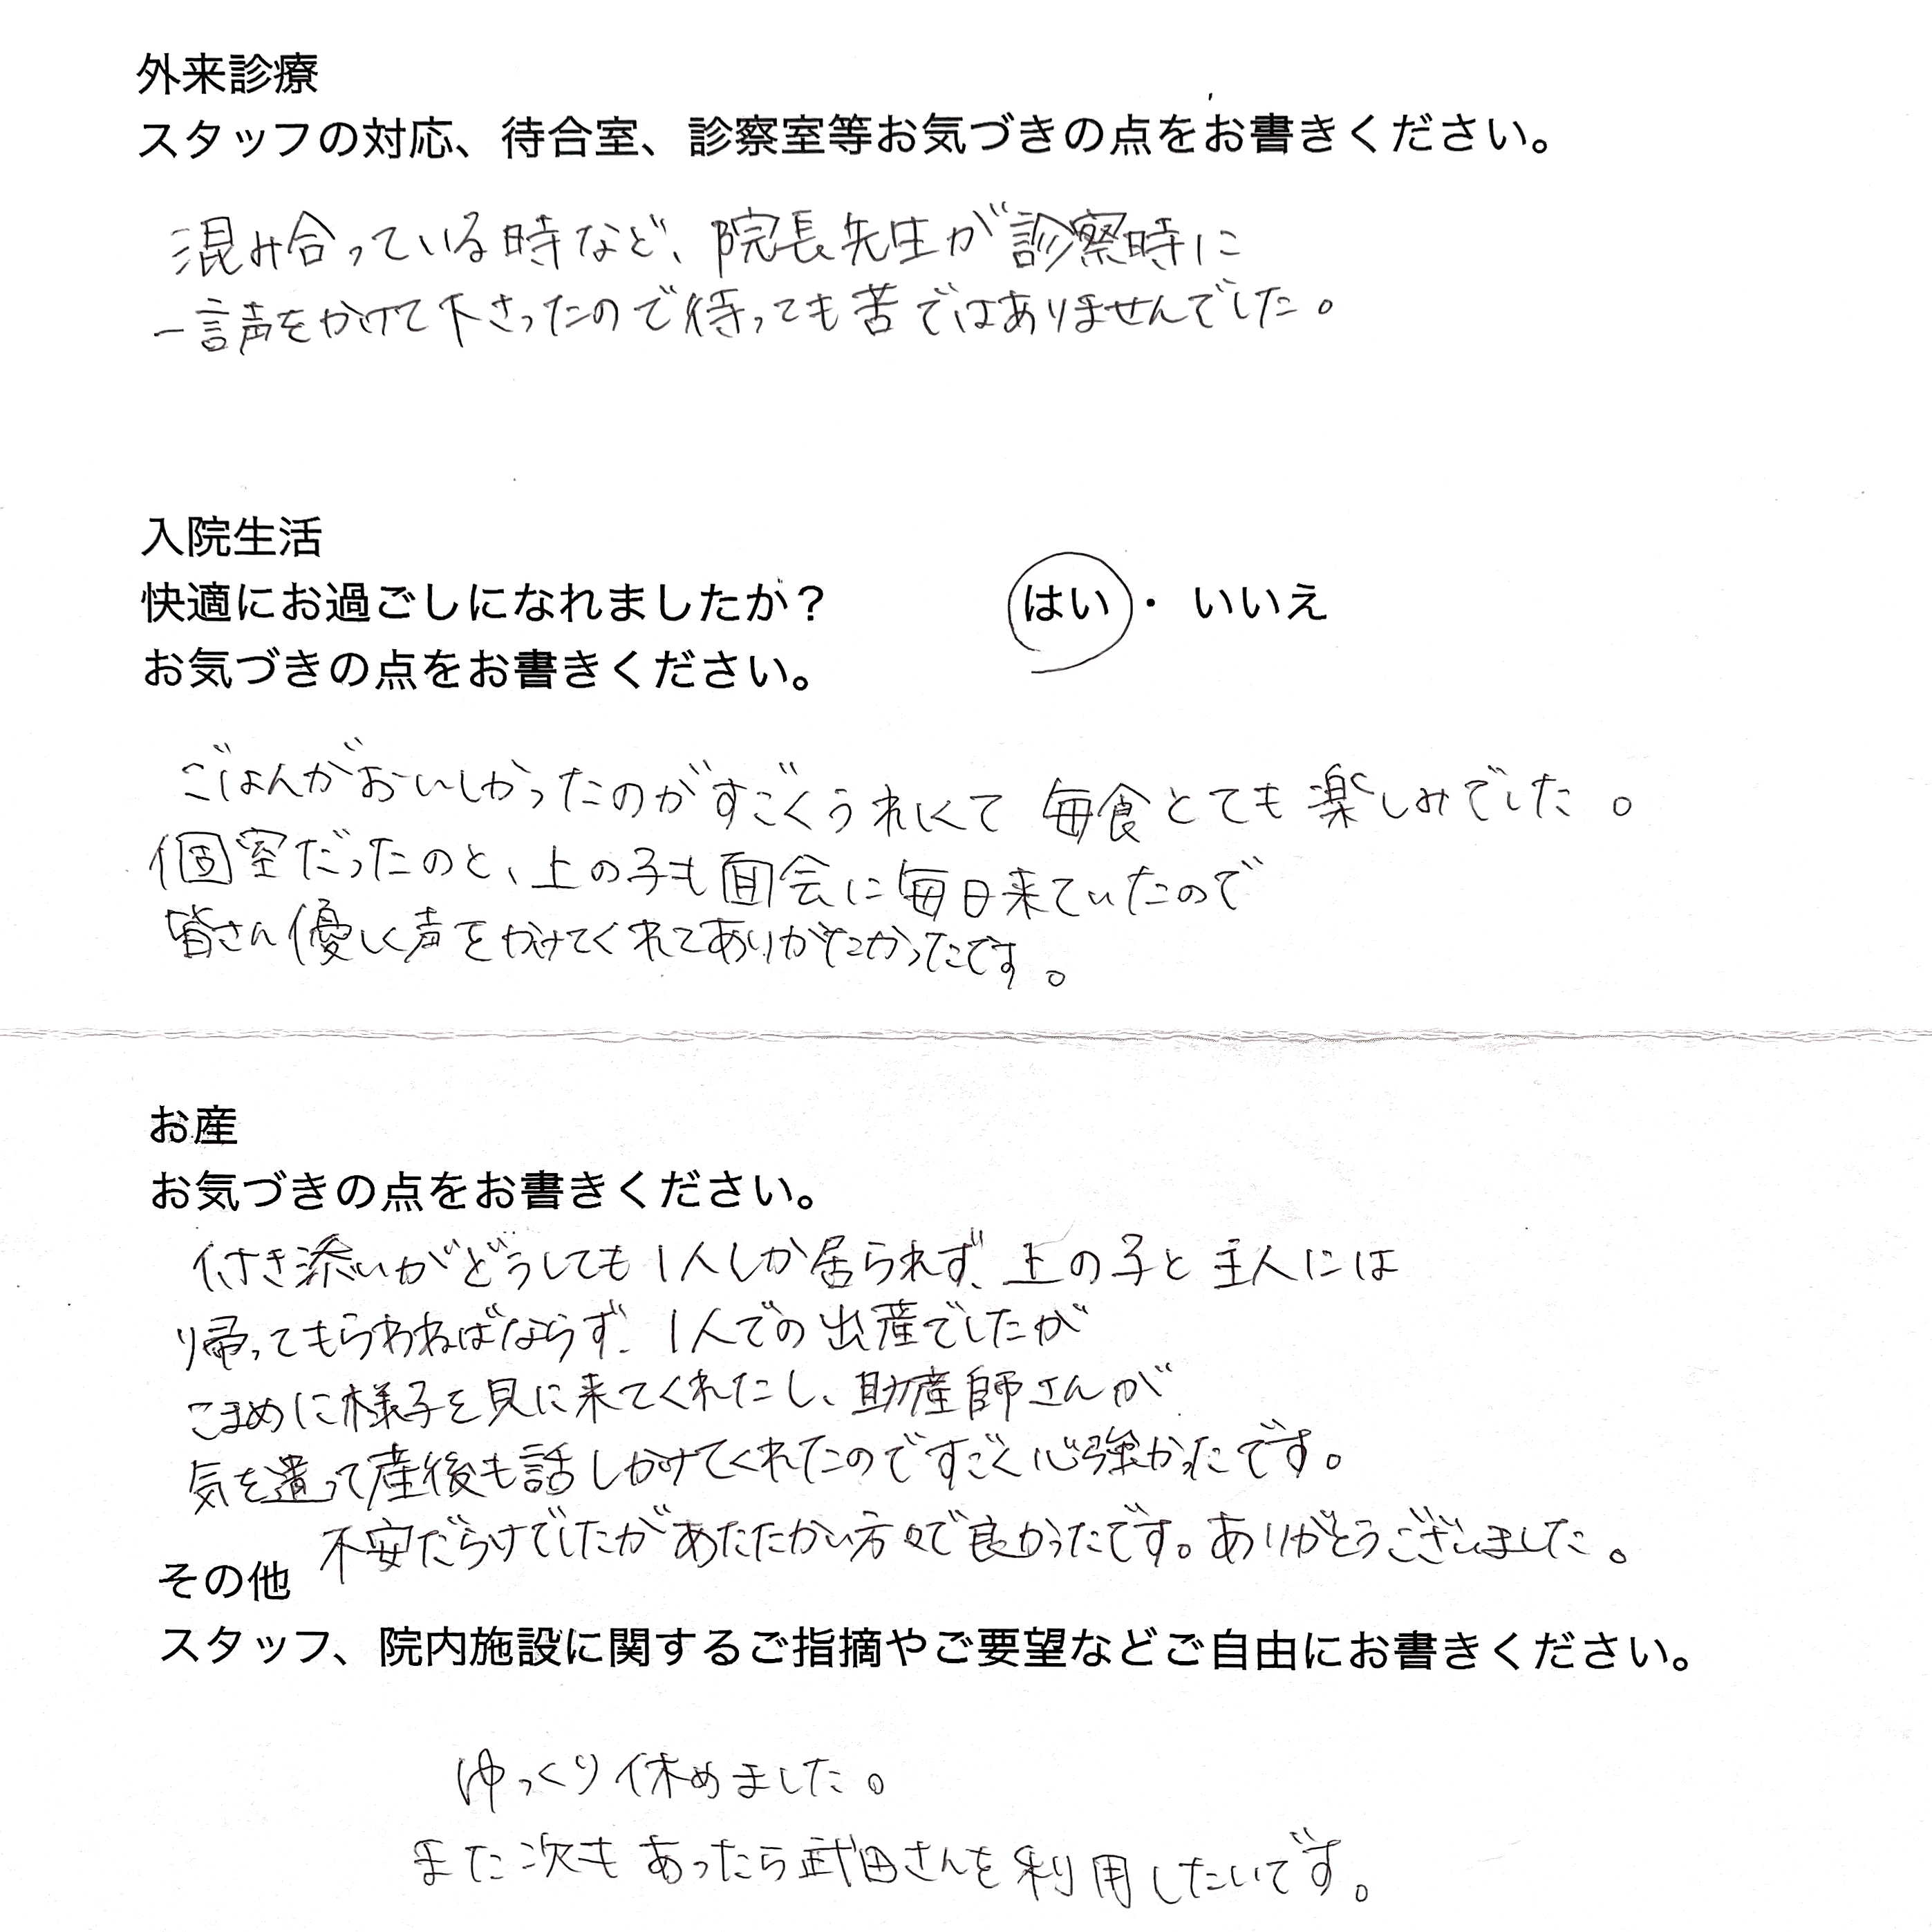 外来診療
スタッフの対応、待合室、診察室等お気づきの点をお書きください。
混み合っている時など、院長先生が診察時に
一言声をかけて下さったので待っても苦ではありませんでした。
入院生活
快適にお過ごしになれましたか？ はい ・ いいえ
お気づきの点をお書きください。
ごはんがおいしかったのがすごくうれしくて 毎食とても楽しみでした。
個室だったのと、上の子も面会に毎日来ていたので
皆さん優しく声をかけてくれてありがたかったです。
お産
お気づきの点をお書きください。
付き添いがどうしても1人しか居られず、上の子と主人には
帰ってもらわねばならず、1人での出産でしたが
こまめに様子を見に来てくれたし、助産師さんが
気を遣って産後も話しかけてくれたのですごく心強かったです。
不安だらけでしたがあたたかい方々で良かったです。ありがとうございました。
その他
スタッフ、院内施設に関するご指摘やご要望などご自由にお書きください。
ゆっくり休めました。
また次もあったら武田さんを利用したいです。